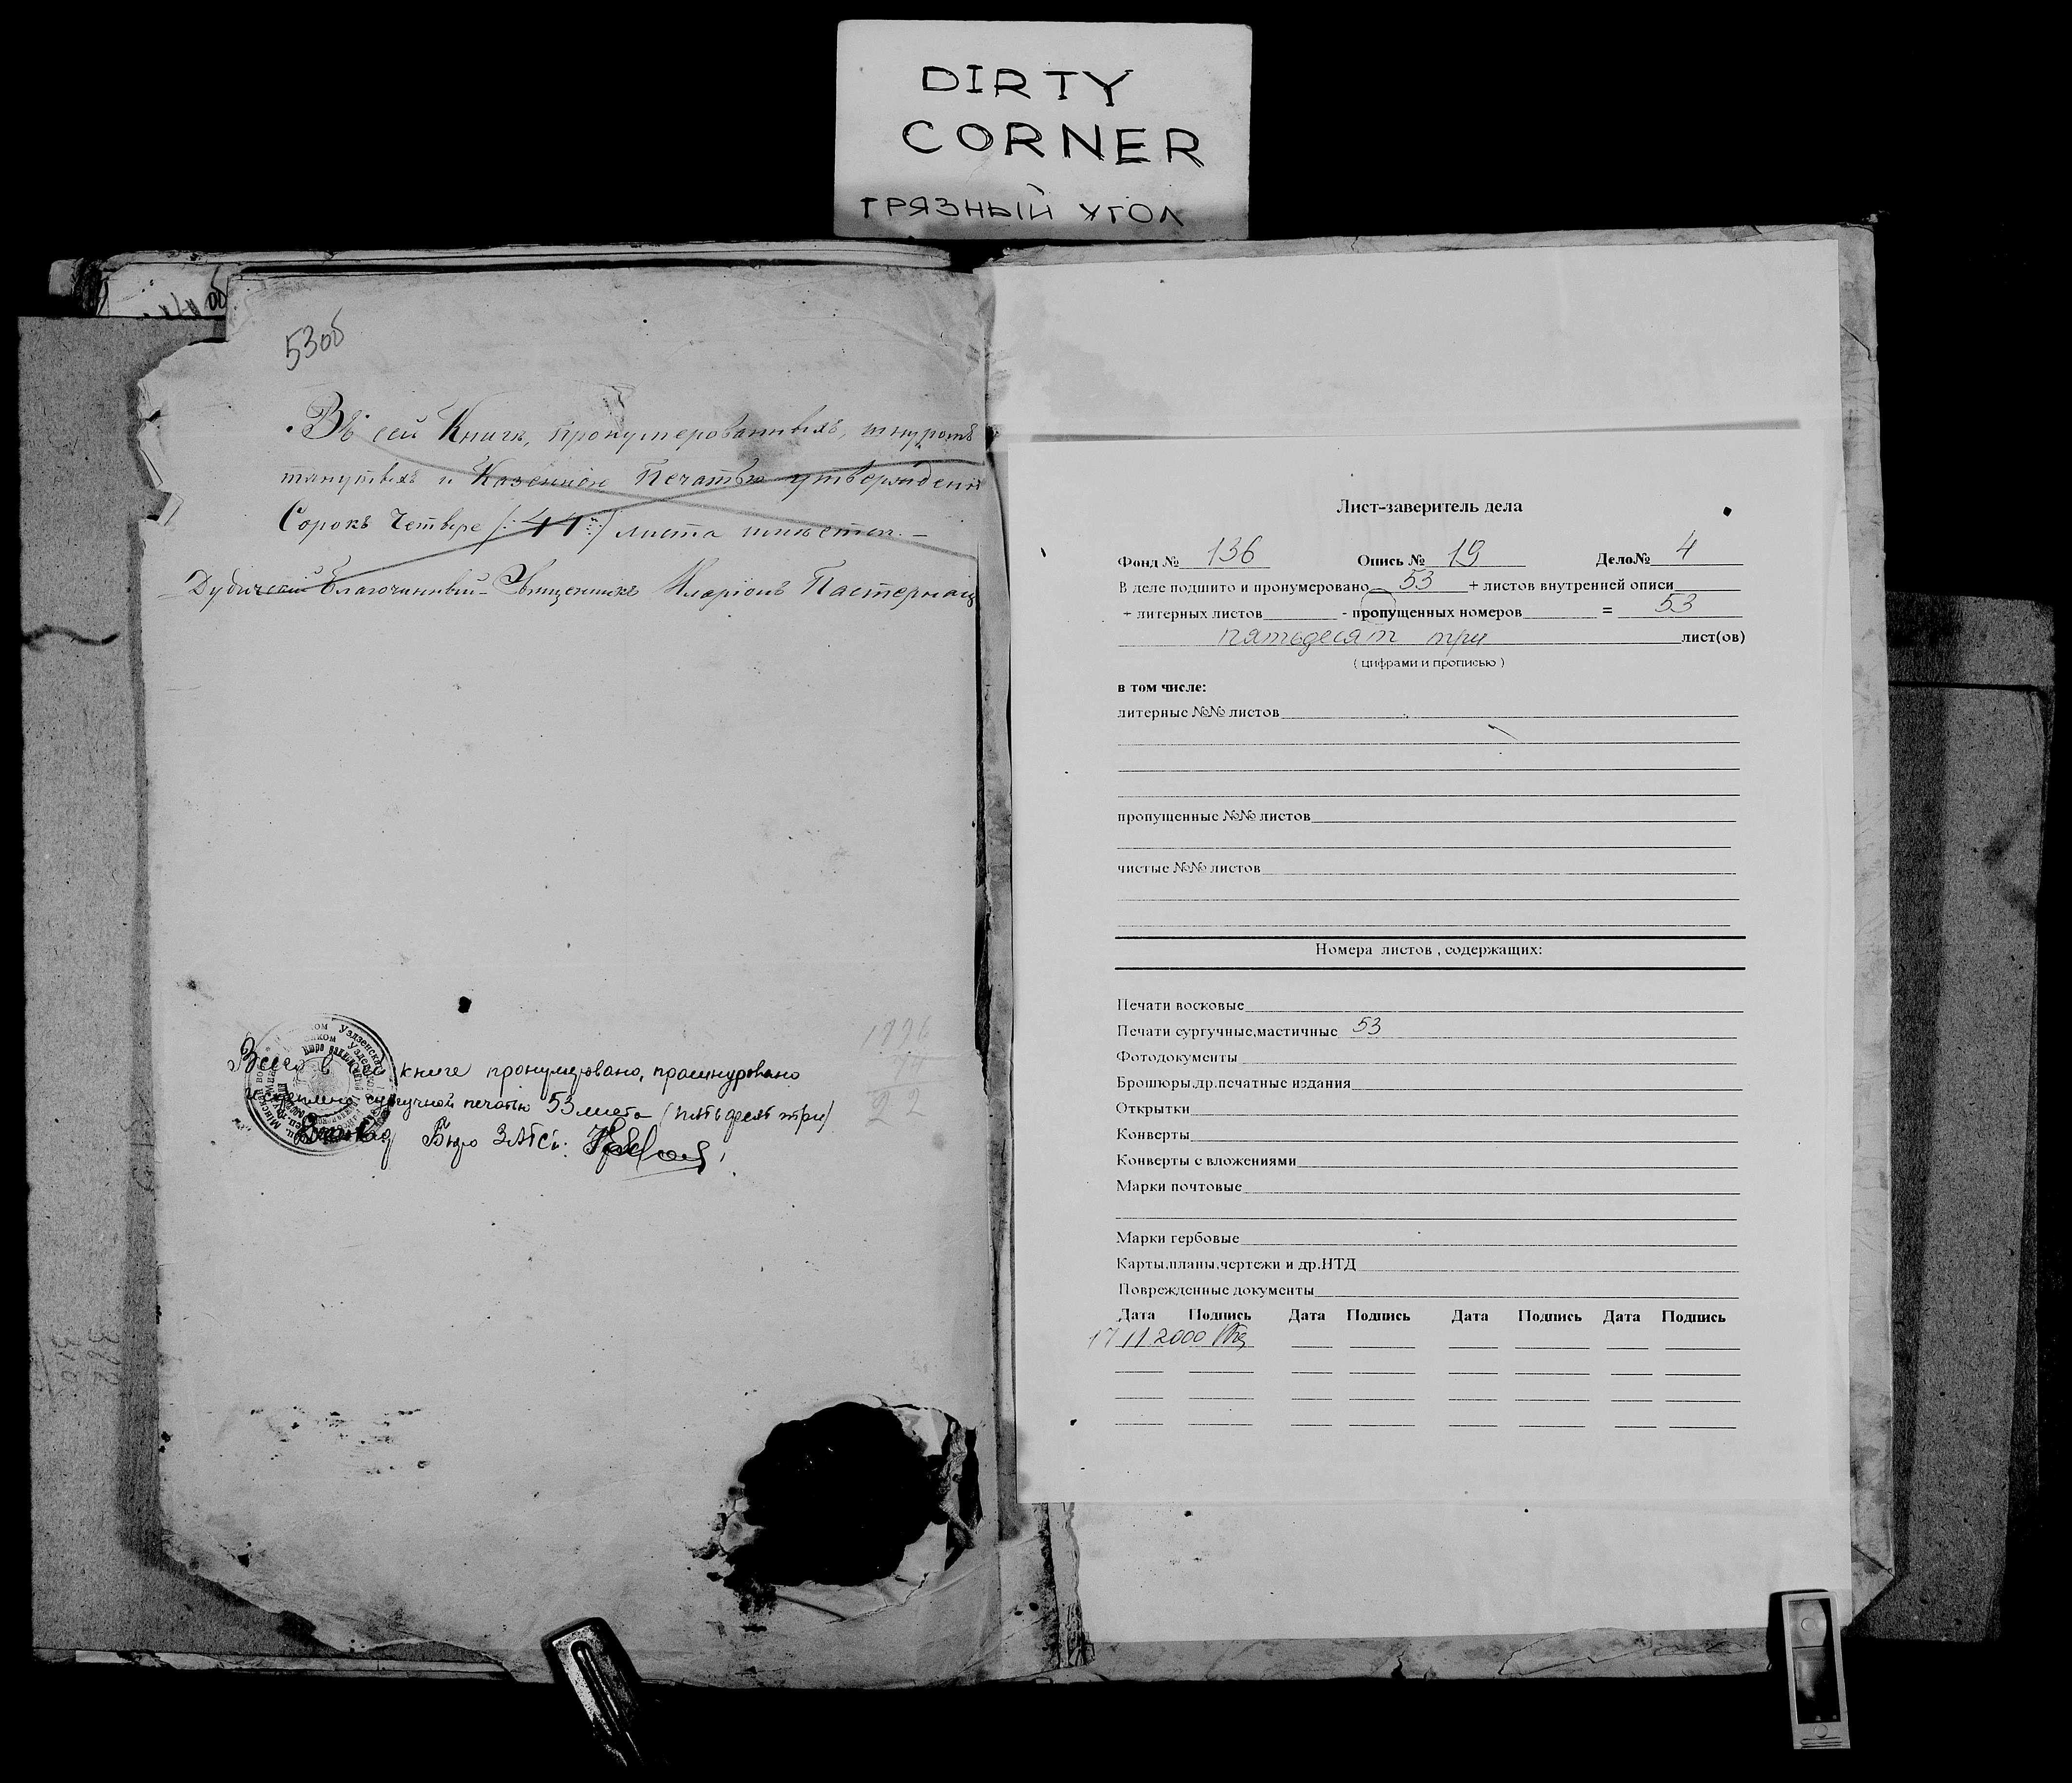 DIRTY
CORNER
ГРЯЗНЫЙ УГОЛ
53об
Въ сей Книгѣ, пронумерованныхъ, шнуромъ
тянутыхъ и Казенною Печатью утвержденн
Сорокъ Четыре /:44:/ листа имѣется. –
Благочинный Священникъ Иларіонъ Пастернац
Всего в книге пронумеровано, прошнуровано
сургучной печатью 53 листа (пятьдесят три)
Бюро ЗАГС:
22
Лист-заверитель дела
Фонд № 136 Опись № 19 Дело№ 4
В деле подшито и пронумеровано 53 + листов внутренней описи
+ литерных листов - пропущенных номеров = 53
пятьдесят три лист(ов)
( цифрами и прописью )
в том числе:
литерные №№ листов
пропущенные №№ листов
чистые №№ листов
Номера листов , содержащих:
Печати восковые
Печати сургучные,мастичные 53
Фотодокументы
Брошюры,др.печатные издания
Открытки
Конверты
Конверты с вложениями
Марки почтовые
Марки гербовые
Карты,планы,чертежи и др.НТД
Поврежденные документы
Дата Подпись Дата Подпись Дата Подпись Дата Подпись
17 11 2000